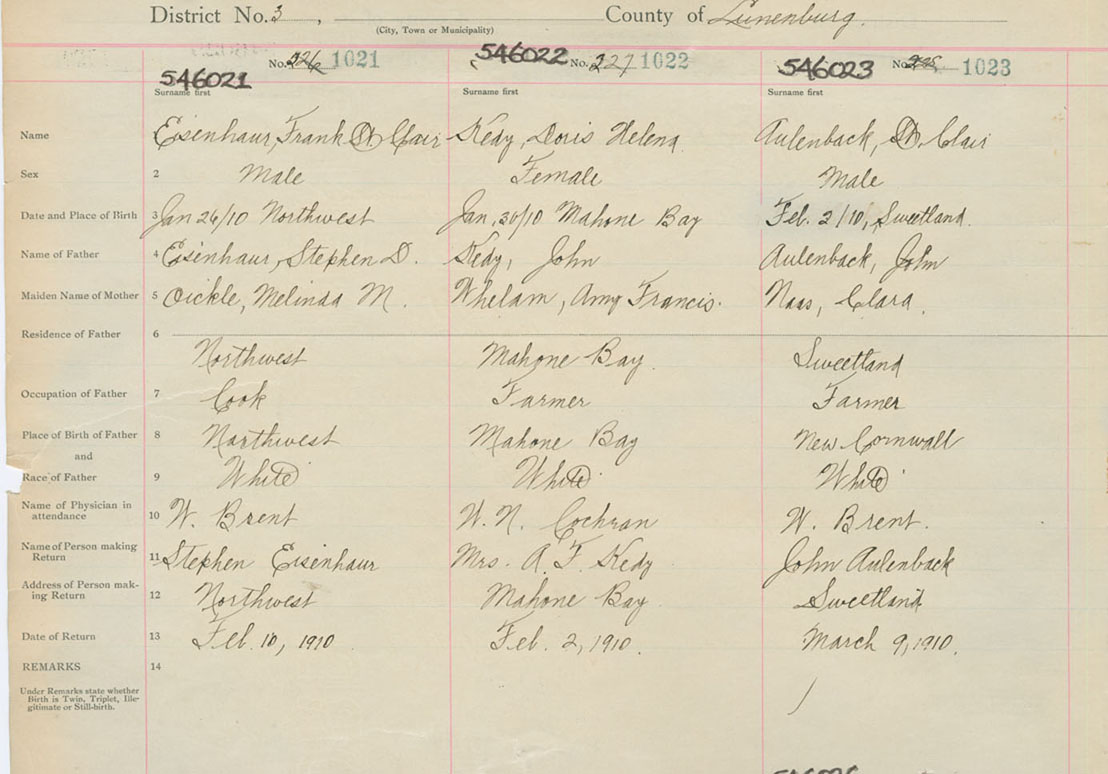 District No. 3, County of Lunenburg.
(City, Town or Municipality)
546021 No. 226 1021 546022 No. 227 1022 546023 No. 1023
Surname first Surname first Surname first
Name Eisenhaur, Frank St. Clair Kedy, Doris Helena Aulenback, St. Clair
Sex 2 Male Female Male
Date and Place of Birth 3 Jan 26/10 Northwest Jan. 30/10 Mahone Bay Feb. 2/10, Sweetland.
Name of Father 4 Eisenhaur, Stephen D. Kedy, John Aulenback, John
Maiden Name of Mother 5 Oickle, Melinda M. Whelam, Amy Francis. Naas, Clara.
Residence of Father 6
Northwest Mahone Bay. Sweetland
Occupation of Father 7 Cook Farmer Farmer
Place of Birth of Father 8 Northwest Mahone Bay New Cornwall
and
Race of Father 9 White White White
Name of Physician in
attendance 10 W. Brent W. N. Cochran W. Brent.
Name of Person making
Return 11 Stephen Eisenhaur Mrs. A. F. Kedy John Aulenback
Address of Person mak-
ing Return 12 Northwest Mahone Bay Sweetland
Date of Return 13 Feb. 10, 1910 Feb. 2, 1910. March 9, 1910.
REMARKS 14
Under Remarks state whether
Birth is Twin, Triplet, Ille-
gitimate or Still-birth.